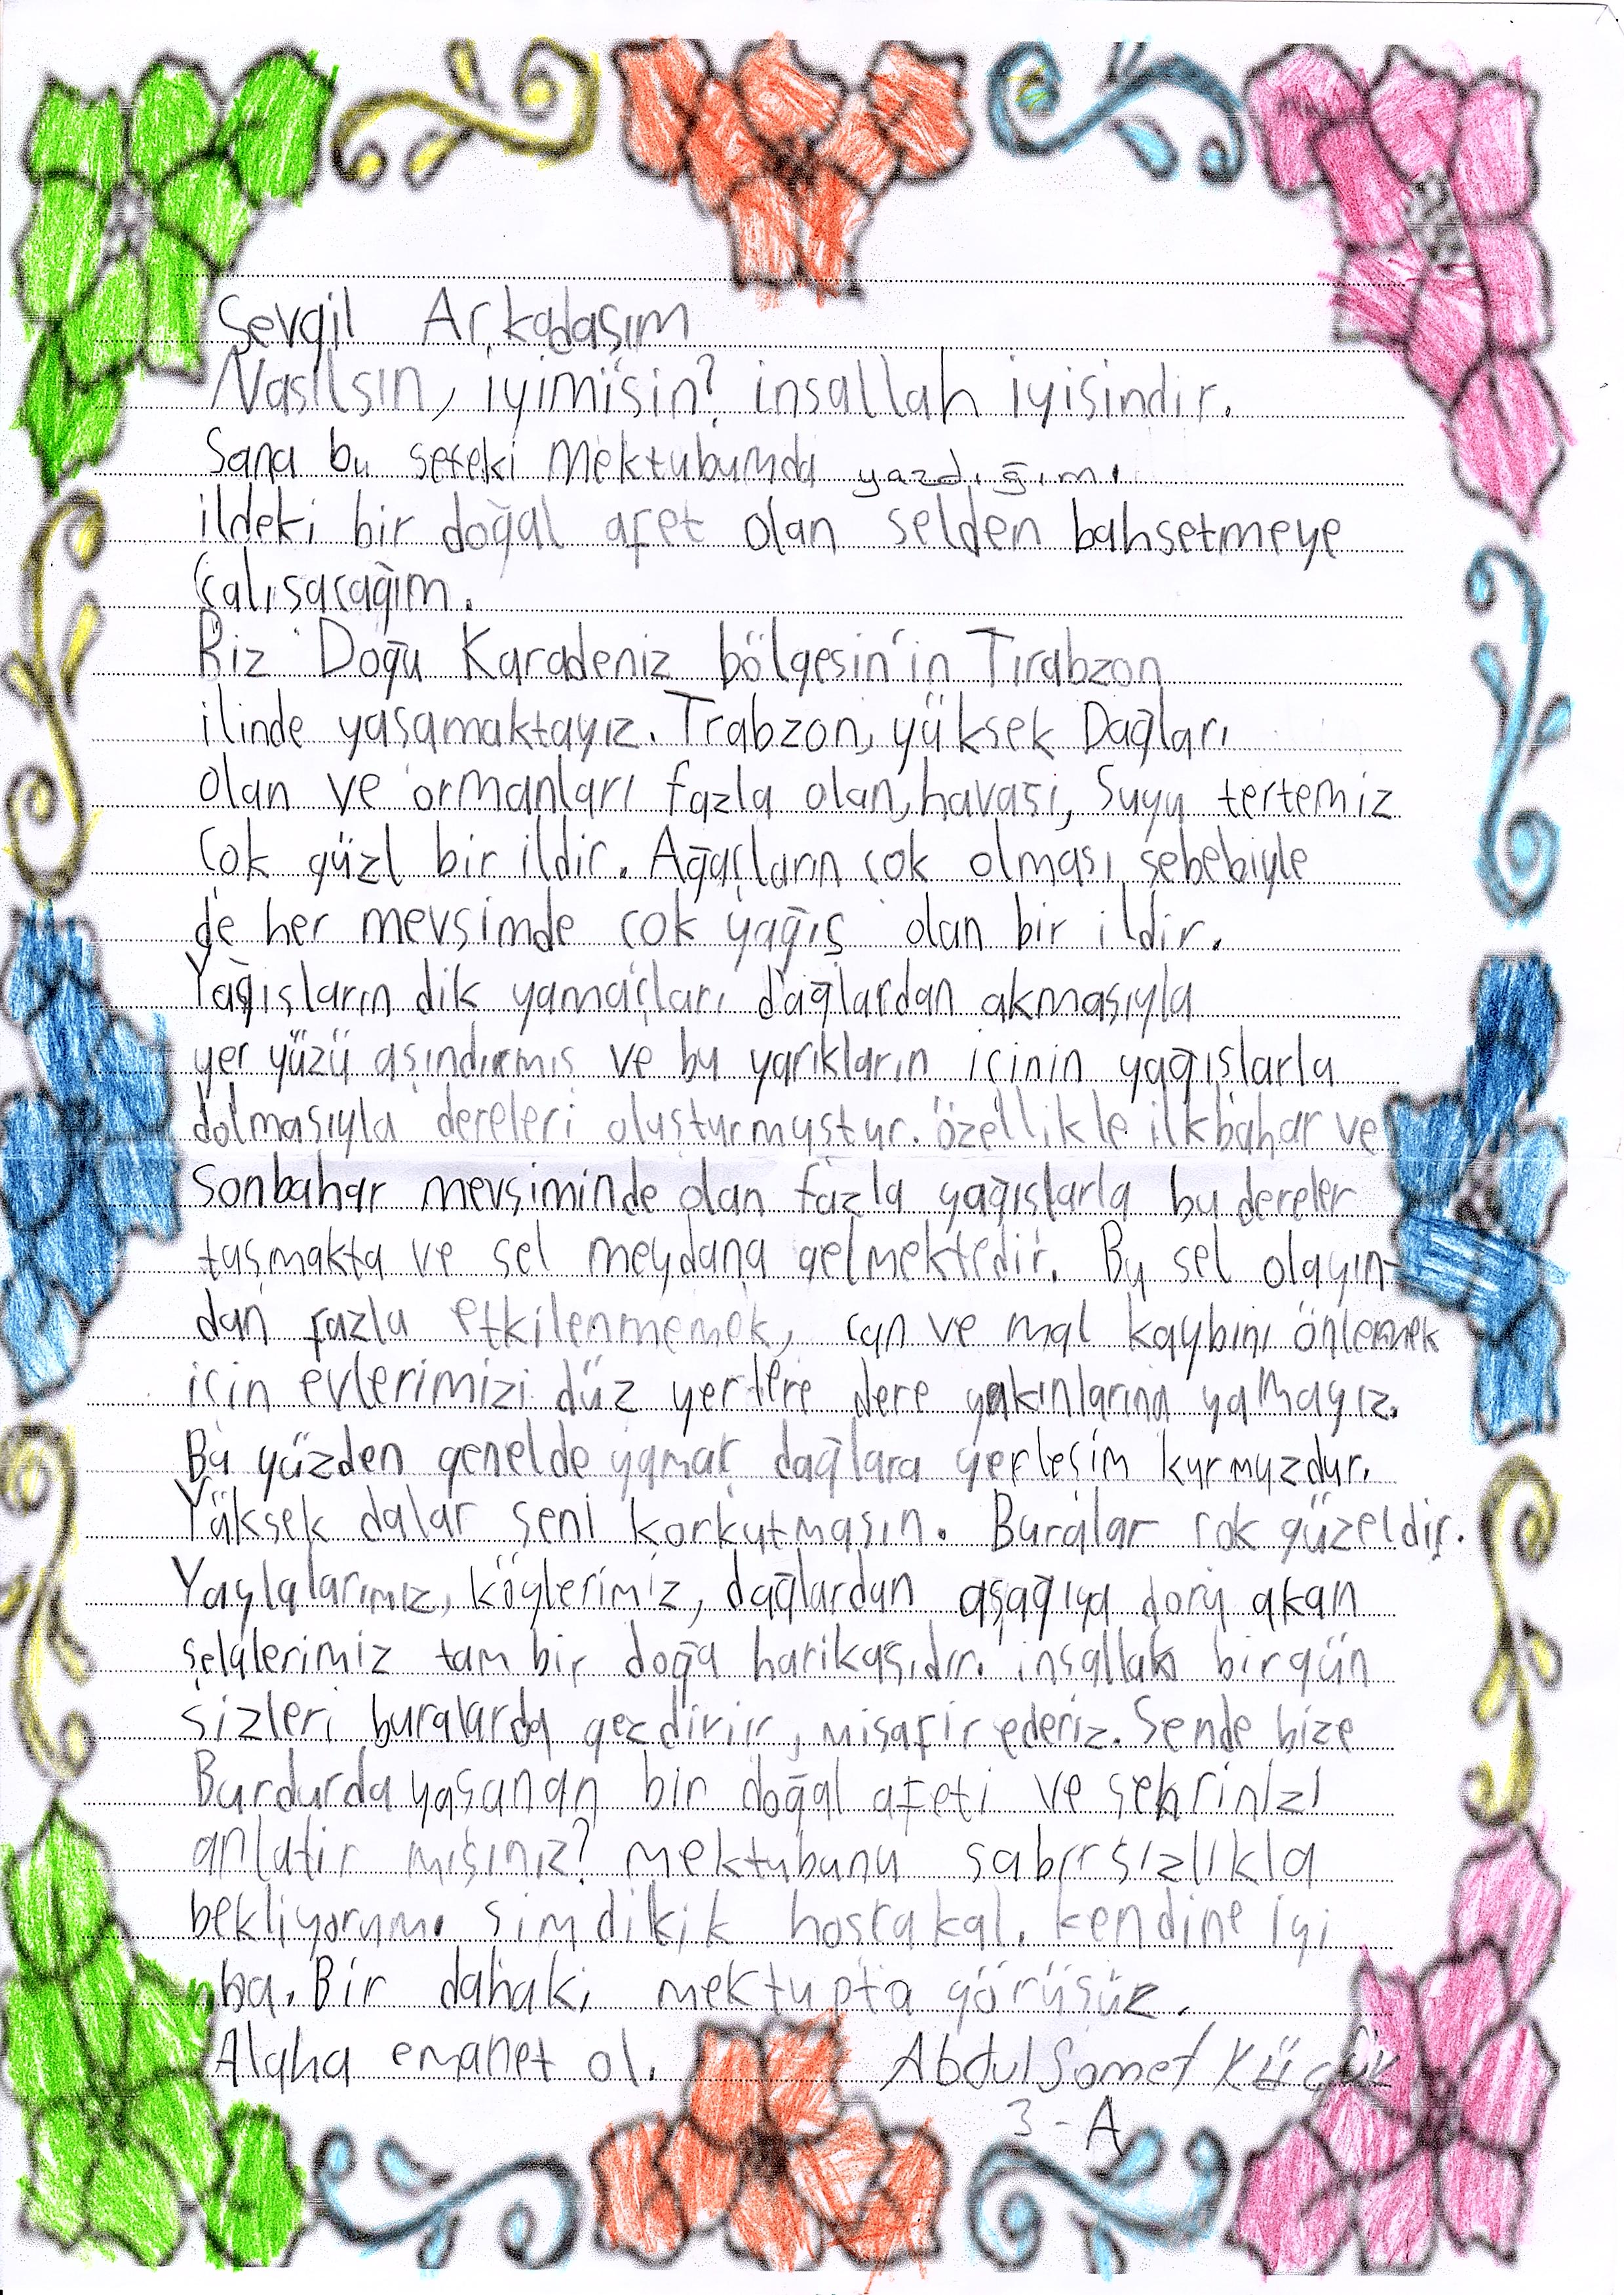 Sevgil Arkadaşım
Nasılsın, iyimisin? inşallah iyisindir.
Sana bu sefeki mektubumda yazdığım
ildeki bir doğal afet olan selden bahsetmeye
çalışacağım.
Biz Doğu Karadeniz bölgesin'in Tırabzon
ilinde yaşamaktayız. Trabzon, yüksek Dağları
olan ve ormanları fazla olan, havası, Suyu tertemiz
çok güzl bir ildir. Ağaçların çok olması sebebiyle
de her mevsimde çok yağış olan bir ildir.
Yağışların dik yamaçları dağlardan akmasıyla
yer yüzü aşındırmış ve bu yarıkların içinin yağışlarla
dolmasıyla dereleri oluşturmuştur. özellikle ilkbahar ve
Sonbahar mevsiminde olan fazla yağışlarla bu dereler
taşmakta ve sel meydana gelmektedir. Bu sel olayın-
dan fazla etkilenmemek, can ve mal kaybını önlemek
için evlerimizi düz yerlere dere yakınlarına yamayız.
Bu yüzden genelde yamaç dağlara yerleşim kurmuzdur.
Yüksek dalar seni korkutmasın. Buralar çok güzeldir.
Yaylalarımız, köylerimiz, dağlardan aşağıya doru akan
şelalerimiz tam bir doğa harikasıdır. inşallah birgün
sizleri buralarda gezdirir, misafir ederiz. Sende bize
Burdurda yaşanan bir doğal afeti ve şehrinizi
anlatır mısınız? mektubunu sabırsızlıkla
bekliyorum. şimdikik hoşçakal. kendine iyi
ba. Bir dahaki mektupta görüşüz.
Alaha emanet ol. Abdul Samet Küçük
3-A